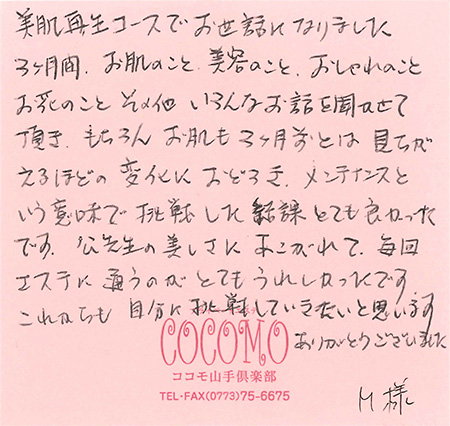 美肌再生コースでお世話になりました
3ヶ月間、お肌のこと、美容のこと、おしゃれのこと
お花のこと その他 いろんなお話を聞かせて
頂き、もちろん お肌も 3ヶ月前とは 見ちが
えるほどの 変化に おどろき、メンテナンスと
いう意味で 挑戦した 結果 とても良かった
です。先生の美しさに あこがれて、毎回
エステに 通うのが とてもうれしかったです。
これからも 自分に 挑戦していきたいと思います
COCOMO
ありがとうございました
ココモ山手倶楽部
TEL・FAX(0773)75-6675
M様